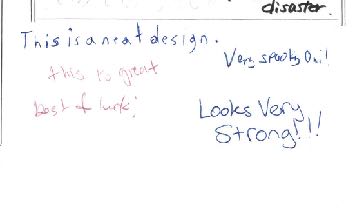 disaster.
This is a neat design.
Very spooky
this is great
best of luck!
Looks Very
Strong!!!